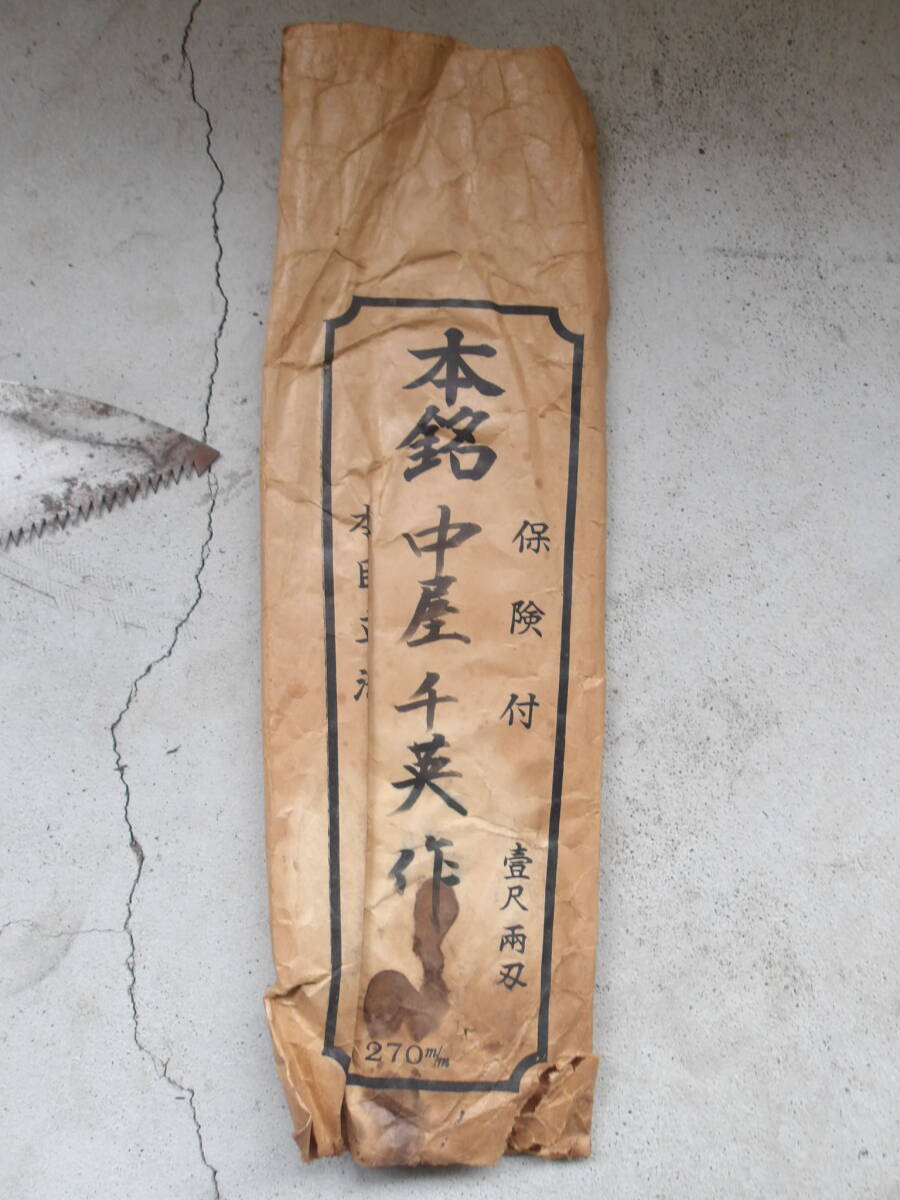 保険付
壹尺兩刃
本銘 中屋千英作
本目立済
270m/m